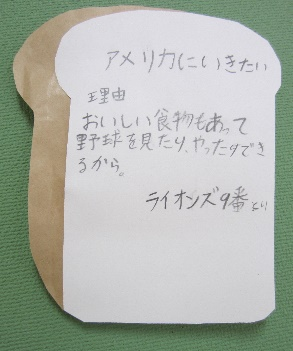 アメリカにいきたい
理由
おいしい食物もあって
野球を見たり、やったりでき
るから。
ライオンズ9番より